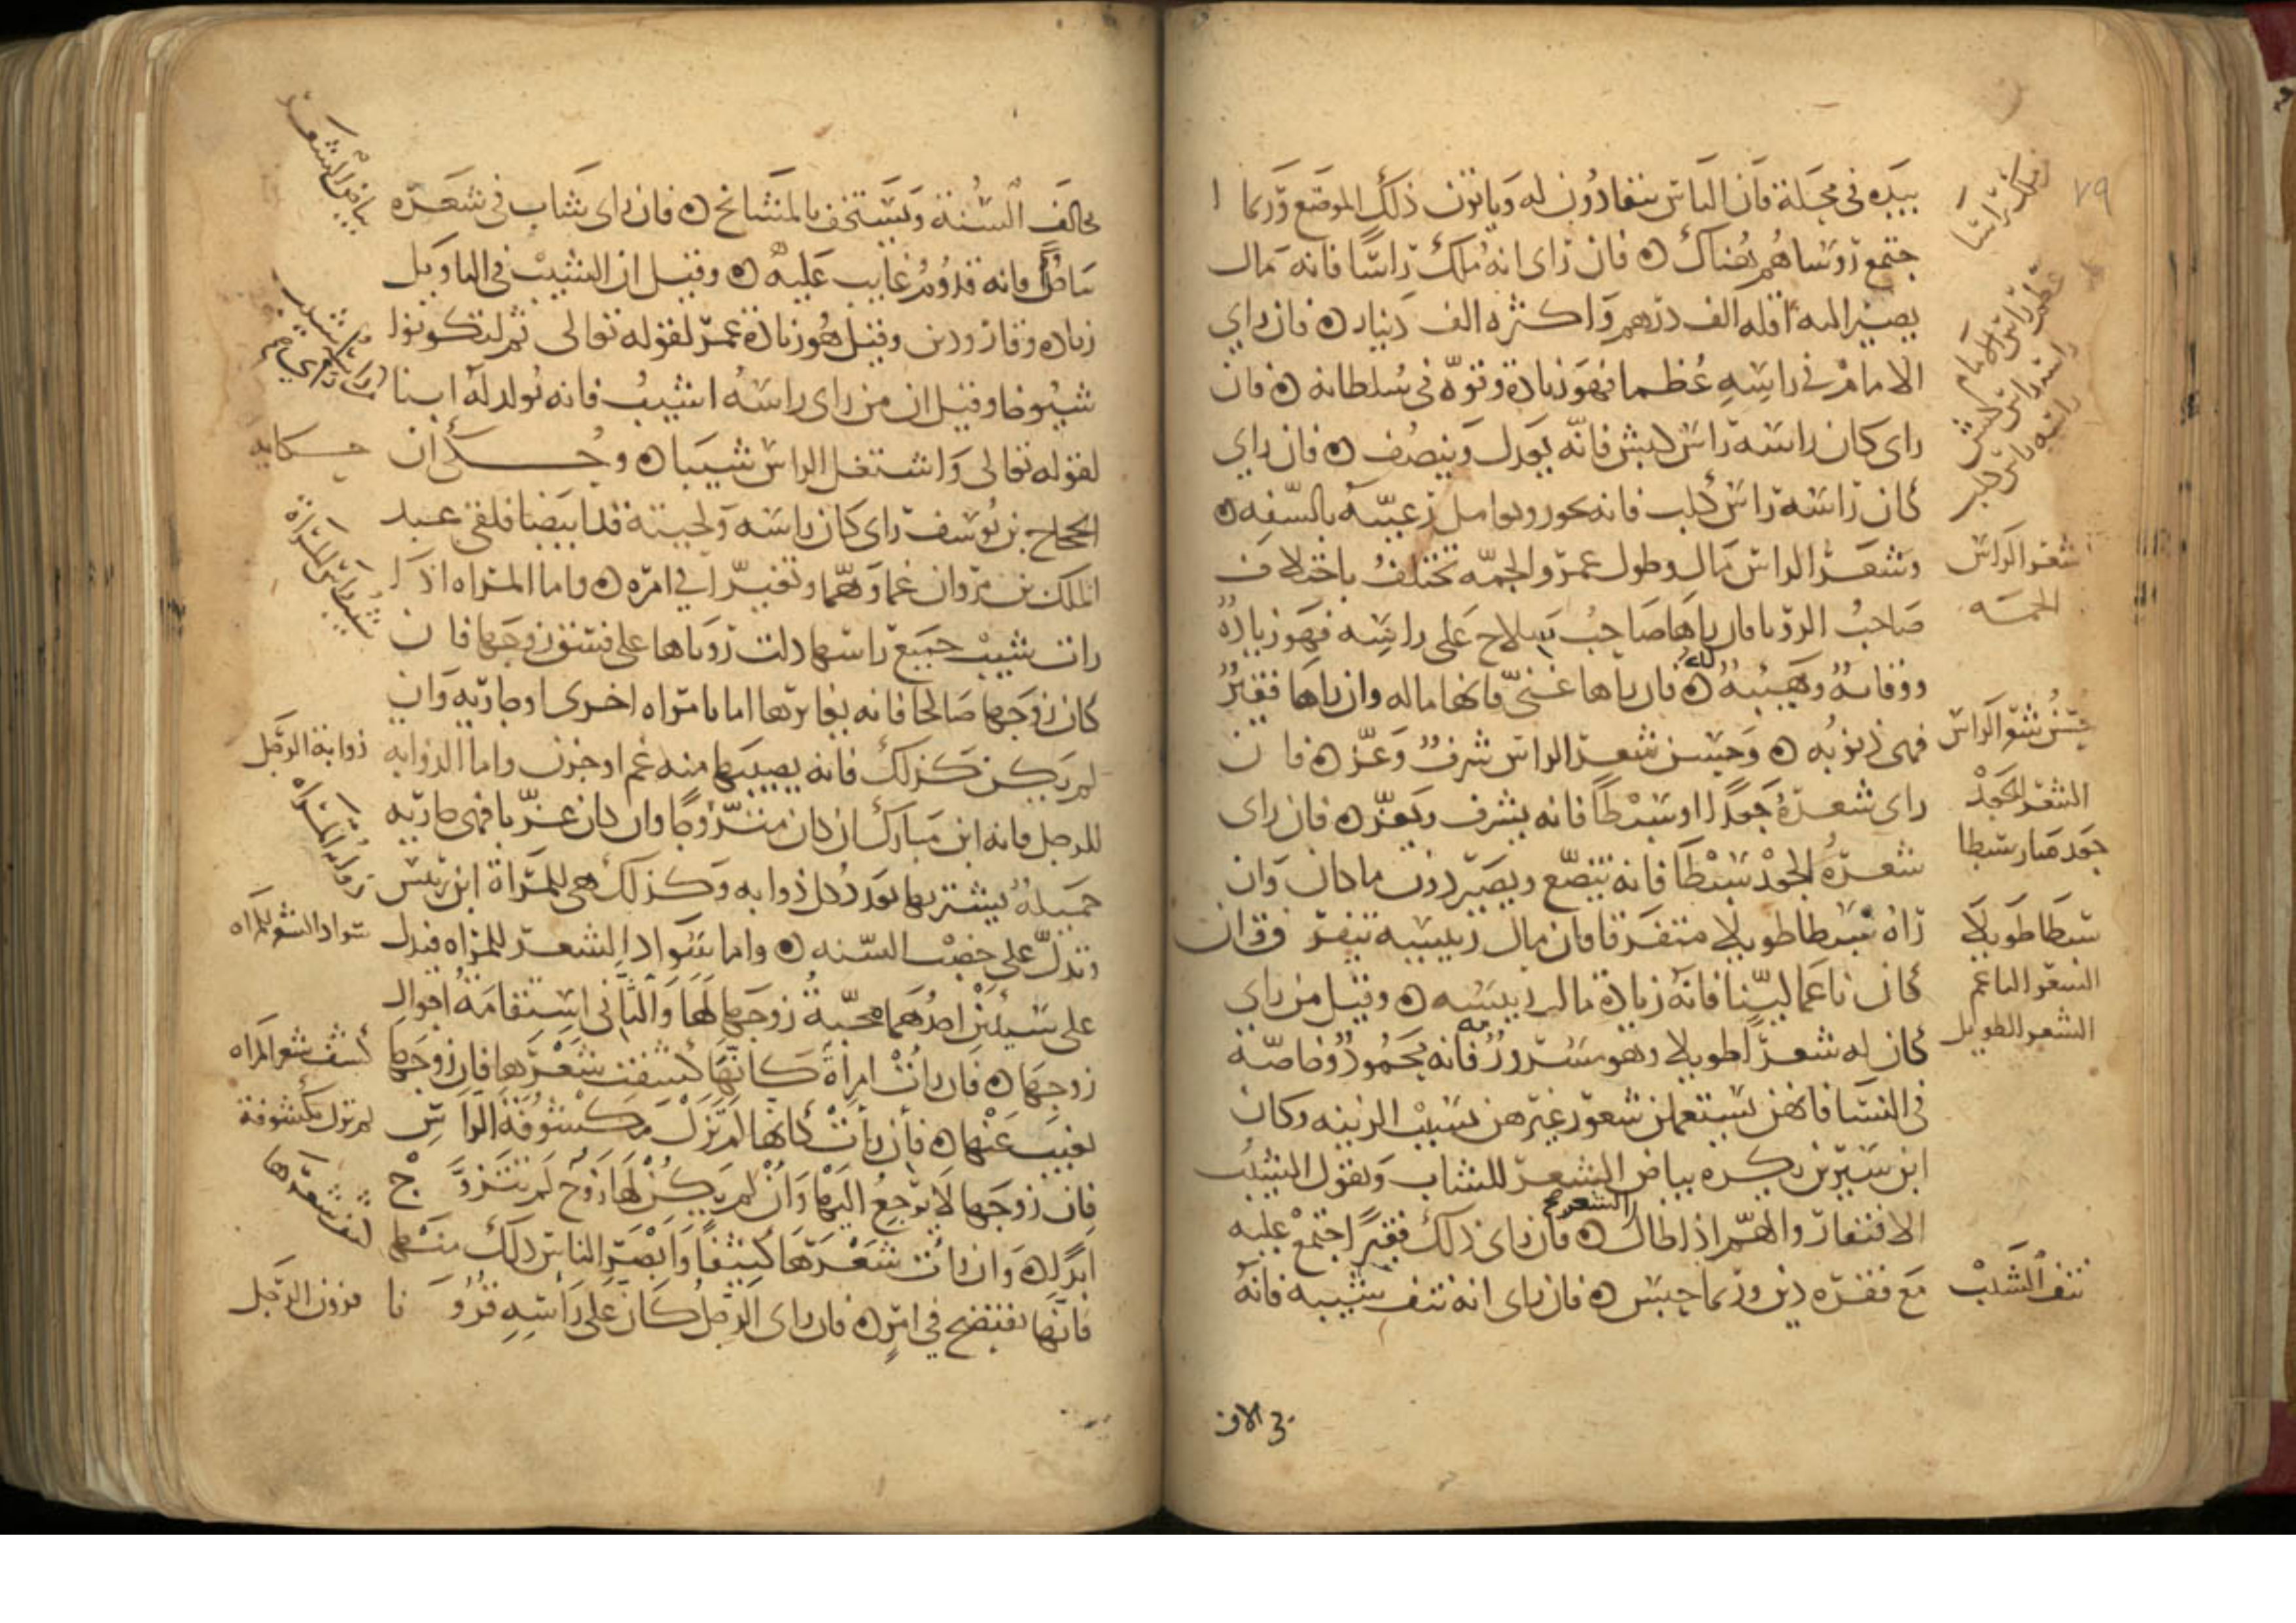 ٧٩
بيده في محلة فان الناس ينقادون له وياتون ذلك الموضع وربما ا
جتمع روساهم هناك ه فان راى انه ملك راسًا فانه مال
يصير اليه اقله الف درهم واكثره الف دينار ه فان راي
الامام في راسه عُظما فهو زيادة وقوّة في سلطانه ه فان
راى كان راسه راس كبش فانه يعدل وينصف ه فان راي
كان راسه راس كلب فانه يجور ويعامل رعيّته بالسّفه ه
وشعر الراس مال وطول عمر والجمّه تختلف باختلاف
صاحب الرويا فان راها صاحب سلاح على راسه فهو زيادة
ووقاية وهيبة له ه فان راها غنيّ فانها ماله وان راها فقير
فهى ذنوبه ه وحسن شعر الراس شرف وعزّ ه فان
راى شعره جعدا او سبطا فانه يشرف ويعزّ ه فان راى
شعره الجعد سبطا فانه يتضع ويصير دون ما كان وان
راه سبطا طويلا متفرقا فان مال رييسه يتفرق وان
كان ناعما ليّنا فانه زيادة مال رييسه ه وقيل من راى
كان له شعرا طويلا وهو مسرور به فانه محمود وخاصّة
في النسا فانهن يستعملن شعور غيرهن بسبب الزينه وكان
ابن سيرين يكره بياض الشعر للشاب ويقول الشيب
الافتقار والهمّ اذا طال الشعر ه فان راى ذلك فقير اجتمع عليه
مع فقره دين وربما حبس ه فان راى انه نتف شيبه فانه
ملك راسا
عظم راس الامام
راسه راس كبش
راسه راس كلب
شعر الراس
الجمه
حسن شعر الراس
الشعر الجعد
جعد صار سبطا
سبطا طويلا
الشعر الناعم
الشعر الطويل
نتف الشيب
يخالف السنة ويستخف بالمشايخ ه فان راى شاب في شعره
بياضًا فانه قدوم غايب عليه ه وقيل ان الشيب في التاويل
زياده وقار ودين وقيل هو زيادة عمر لقوله تعالى ثم لتكونوا
شيوخا وقيل ان من راى راسه اشيب فانه يولد له ابنا
لقوله تعالى واشتعل الراس شيبا ه وحكى ان
الحجاج بن يوسف راى كان راسه ولحيته قد ابيضا فلقى عبد
الملك بن مروان غما وهمّا وتغيرا في امره ه واما المراه اذا
رات شيب جميع راسها دلت روياها على فسق زوجها فان
كان زوجها صالحا فانه يغايرها اما بامراه اخرى او جاريه وان
لم يكن كذلك فانه يصيبها منه غم او حزن واما الذوابه
للرجل فانه ابن مبارك ان كان متزوجا وان كان عزبا فهى جاريه
جميلة يشتريها بعدد كل ذوابه وكذلك هى للمراة ابن رييس
وتدلّ على خصب السنه ه واما سواد الشعر للمراه فيدل
على شيئين احدهما محبة زوجها لها والثاني استقامة احوال
زوجها ه فان رات امراة كانها كشفت شعرها فان زوجها
يغيب عنها ه فان رات كانها لم تزل مكشوفة الراس
فان زوجها لا يرجع اليها وان لم يكن لها زوج لم تتزوج
ابدًا ه وان رات شعرها كثيفًا وابصر الناس ذلك منها
فانها تفتضح في امر ه فان راى الرجل كان على راسه قرونا
بياض الشعر
حكايه
شيب راس المراة
ذوابة الرجل
ذوابة المراه
سواد الشعر للمراه
كشف شعر المراه
لم تزل مكشوفة
كثف شعرها
قرون الرجل